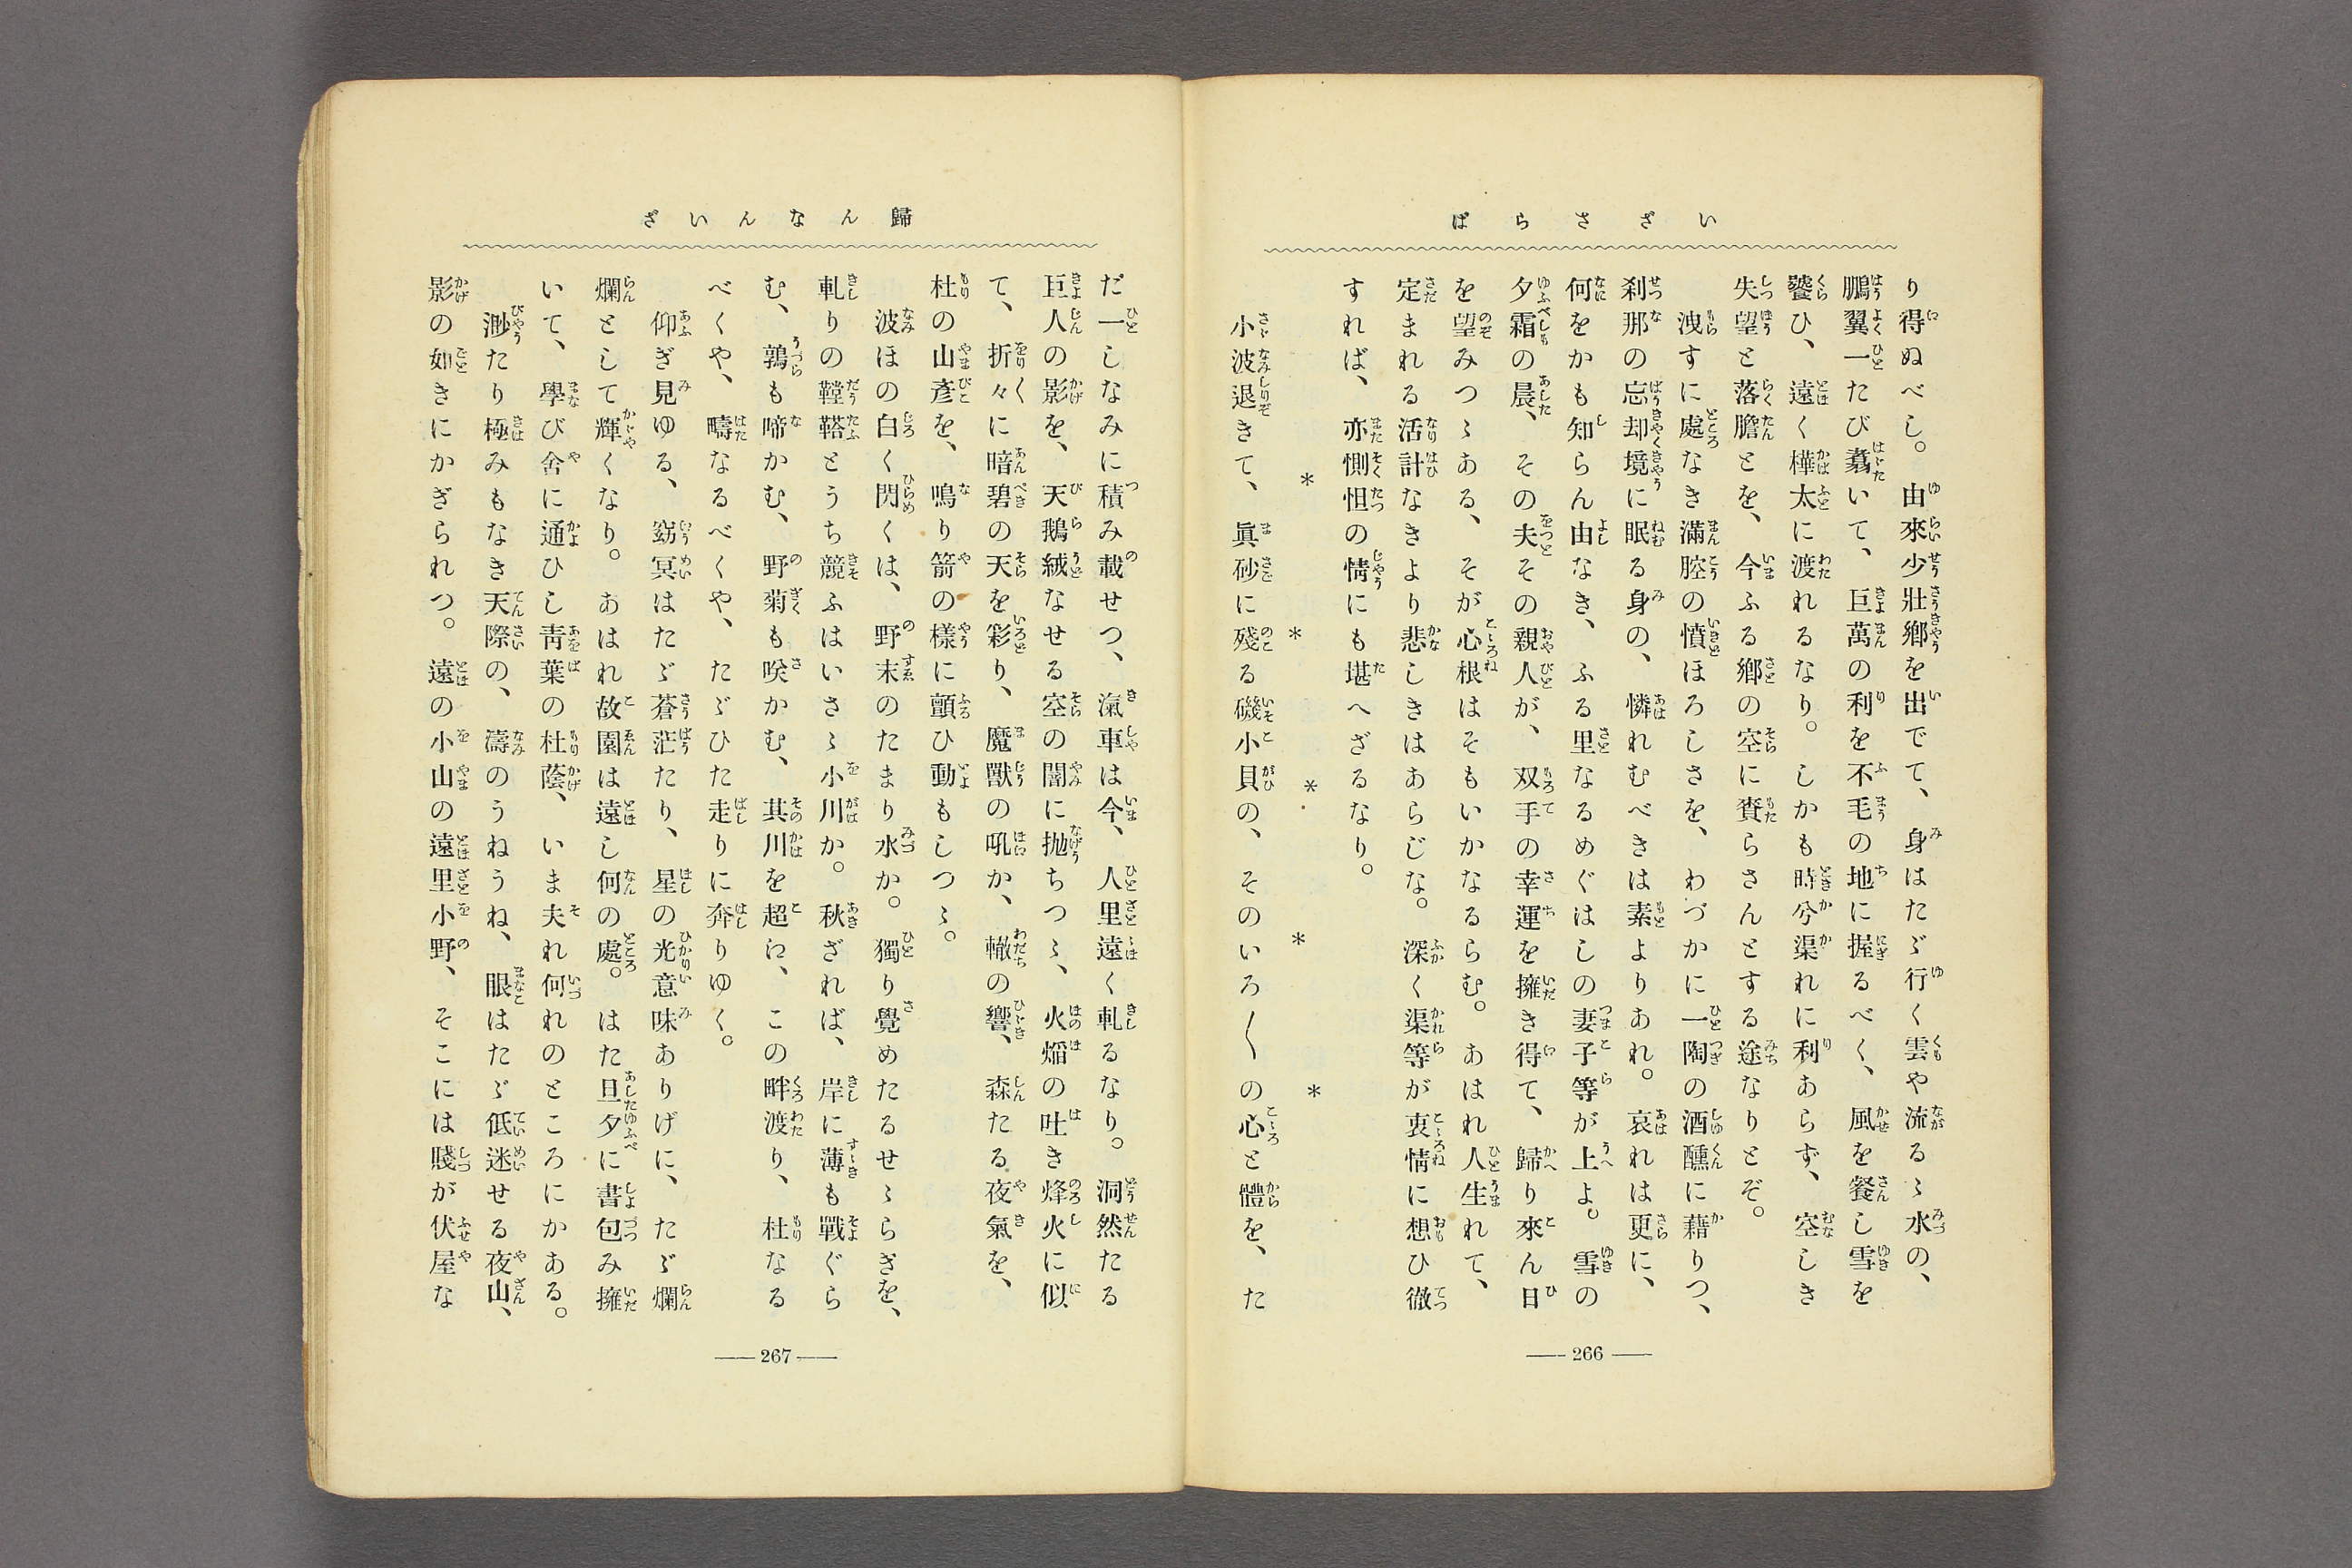 いざさらば
り得ぬべし。由來少壯鄕を出でて、身はたゞ行く雲や流るゝ水の、
鵬翼一たび翥いて、巨萬の利を不毛の地に握るべく、風を餐し雪を
饕ひ、遠く樺太に渡れるなり。しかも時兮渠れに利あらず、空しき
失望と落膽とを、今ふる鄕の空に賚らさんとする途なりとぞ。
洩すに處なき滿腔の憤ほろしさを、わづかに一陶の酒醺に藉りつ、
刹那の忘却境に眠る身の、憐れむべきは素よりあれ。哀れは更に、
何をかも知らん由なき、ふる里なるめぐはしの妻子等が上よ。雪の
夕霜の晨、その夫その親人が、双手の幸運を擁き得て、歸り來ん日
を望みつゝある、そが心根はそもいかなるらむ。あはれ人生れて、
定まれる活計なきより悲しきはあらじな。深く渠等が衷情に想ひ徹
すれば、亦惻怛の情にも堪へざるなり。
* * * * *
小波退きて、眞砂に殘る磯小貝の、そのいろ〱の心と體を、た
266
歸んなんいざ
だ一しなみに積み載せつ、氣車は今、人里遠く軋るなり。洞然たる
巨人の影を、天鵝絨なせる空の闇に抛ちつゝ、火熖の吐き烽火に似
て、折々に暗碧の天を彩り、魔獸の吼か、轍の響、森たる夜氣を、
杜の山彥を、鳴り箭の樣に顫ひ動もしつゝ。
波ほの白く閃くは、野末のたまり水か。獨り覺めたるせゝらぎを、
軋りの鞺鞳とうち競ふはいさゝ小川か。秋ざれば、岸に薄も戰ぐら
む、鶉も啼かむ、野菊も咲かむ、其川を超ﾆ、この畔渡り、杜なる
べくや、疇なるべくや、たゞひた走りに奔りゆく。
仰ぎ見ゆる、窈冥はたゞ蒼茫たり、星の光意味ありげに、たゞ爛
爛として輝くなり。あはれ故園は遠し何の處。はた旦夕に書包み擁
いて、學び舍に通ひし靑葉の杜蔭、いま夫れ何れのところにかある。
渺たり極みもなき天際の、濤のうねうね、眼はたゞ低迷せる夜山、
影の如きにかぎられつ。遠の小山の遠里小野、そこには賤が伏屋な
267